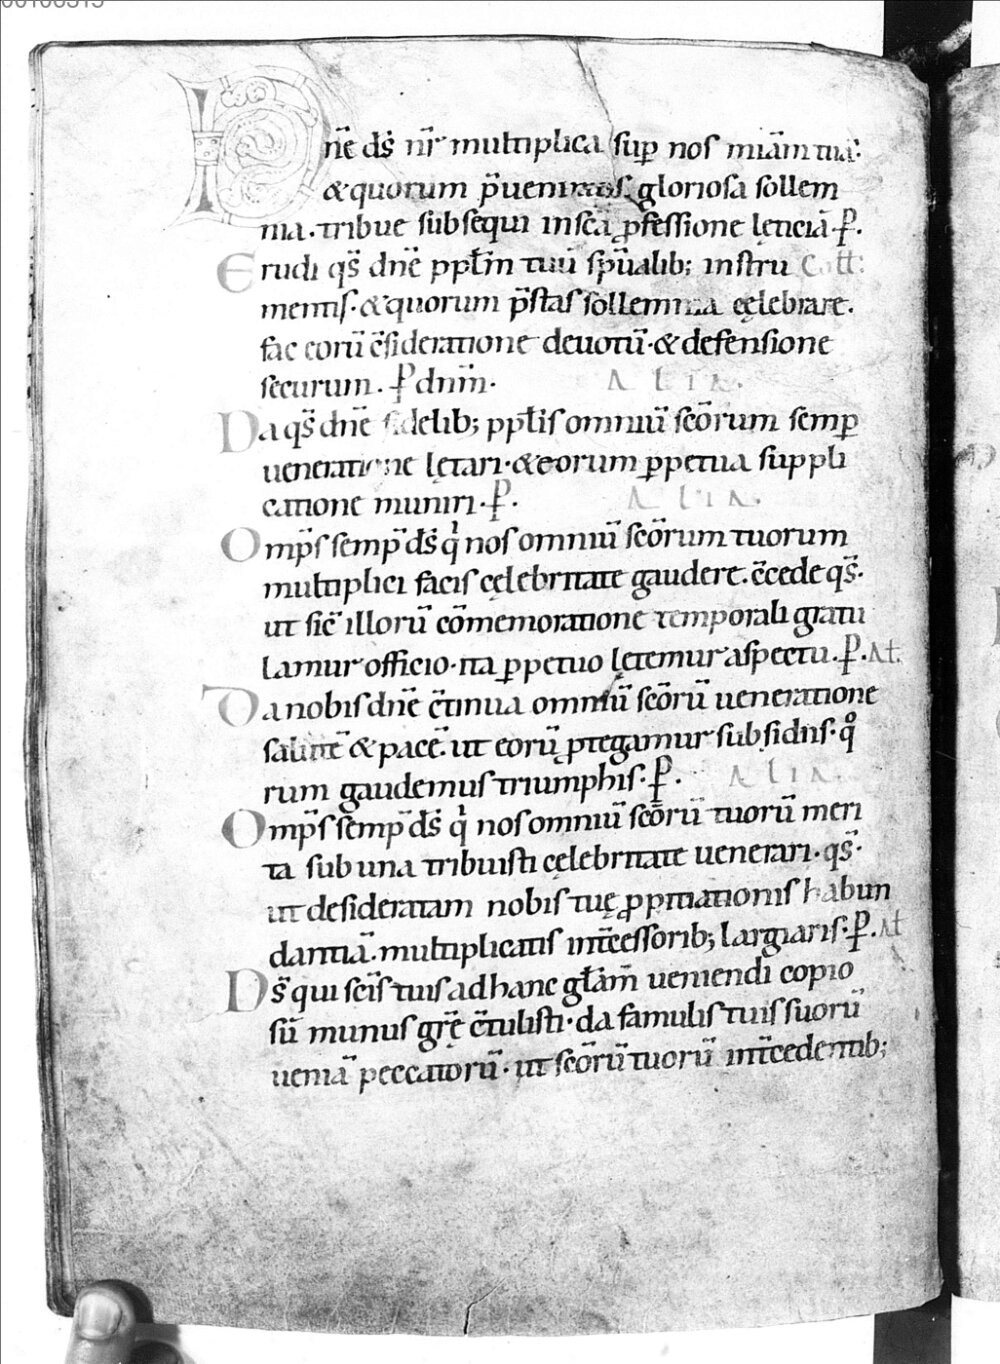 Dn̄e ds̄ nr̄ multiplica sup̱ nos miām tuā·
&quorum p̄uenimus gloriosa sollem
nia. tribue subsequi in sc̄a ꝓfessione lęticiā· P̱.
Erudi qs̄ dn̄e pplm̄ tuū sp̄ualib; instru Coll̄:
mentis· &quorum p̄stas sollemnia cęlebrare.
fac eorū c̄sideratione deuotū· & defensione
securum. P̱ dnm̄· ALIA.
Da qs̄ dn̄e fidelib; pplis̄ omniū sc̄orum semp̱
ueneratione lętari· & eorum p̱petua suppli
catione muniri· P̱. ALIA.
Omp̄s semp̄ ds̄ q̇ nos omniū sc̄orum tuorum
multiplici facis cęlebritate gaudere. c̄cede qs̄·
ut sic̄ illorū cōmemoratione temporali gratu
lamur officio· ita p̱petuo lętemur aspectu. P̱. Al̄.
Da nobis dn̄e c̄tinua omniū sc̄orū ueneratione
salutē & pacē. ut eorū p̱tegamur subsidiis· qͦ
rum gaudemus triumphis· P̱. ALIA.
Omp̄s semp̄ ds̄ q̇ nos omniū sc̄orū tuorū meri
ta sub una tribuisti cęlebritate uenerari· qs̄·
ut desideratam nobis tuę ꝓpitiationis habun
dantiā. multiplicatis int̄cessorib; largiaris· P̱. Al̄
Ds̄ qui sc̄is tuis ad hanc glam̄ ueniendi copio
sū munus gr̄ę c̄tulisti· da famulis tuis suorū
ueniā peccatorū· ut sc̄orū tuorū int̄cedentib;